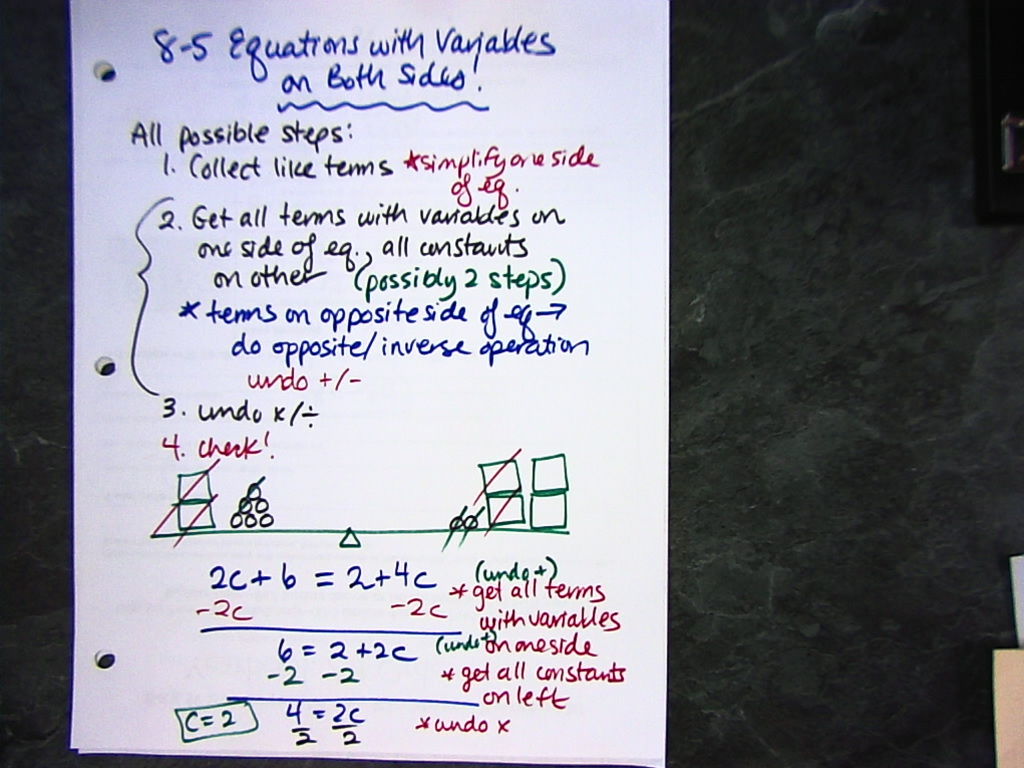 8-5 Equations with Variables
on Both Sides!
All possible steps:
1. Collect like terms *simplify one side
of eq.
2. Get all terms with variables on
one side of eq., all constants
on other (possibly 2 steps)
* terms on opposite side of eq →
do opposite/inverse operation
undo +/-
3. undo x/÷
4. check!
2c + 6 = 2 + 4c (undo +)
* get all terms
-2c -2c with variables
6 = 2 + 2c (undo +) on one side
-2 -2 * get all constants
on left
c = 2 4/2 = 2c/2 * undo x